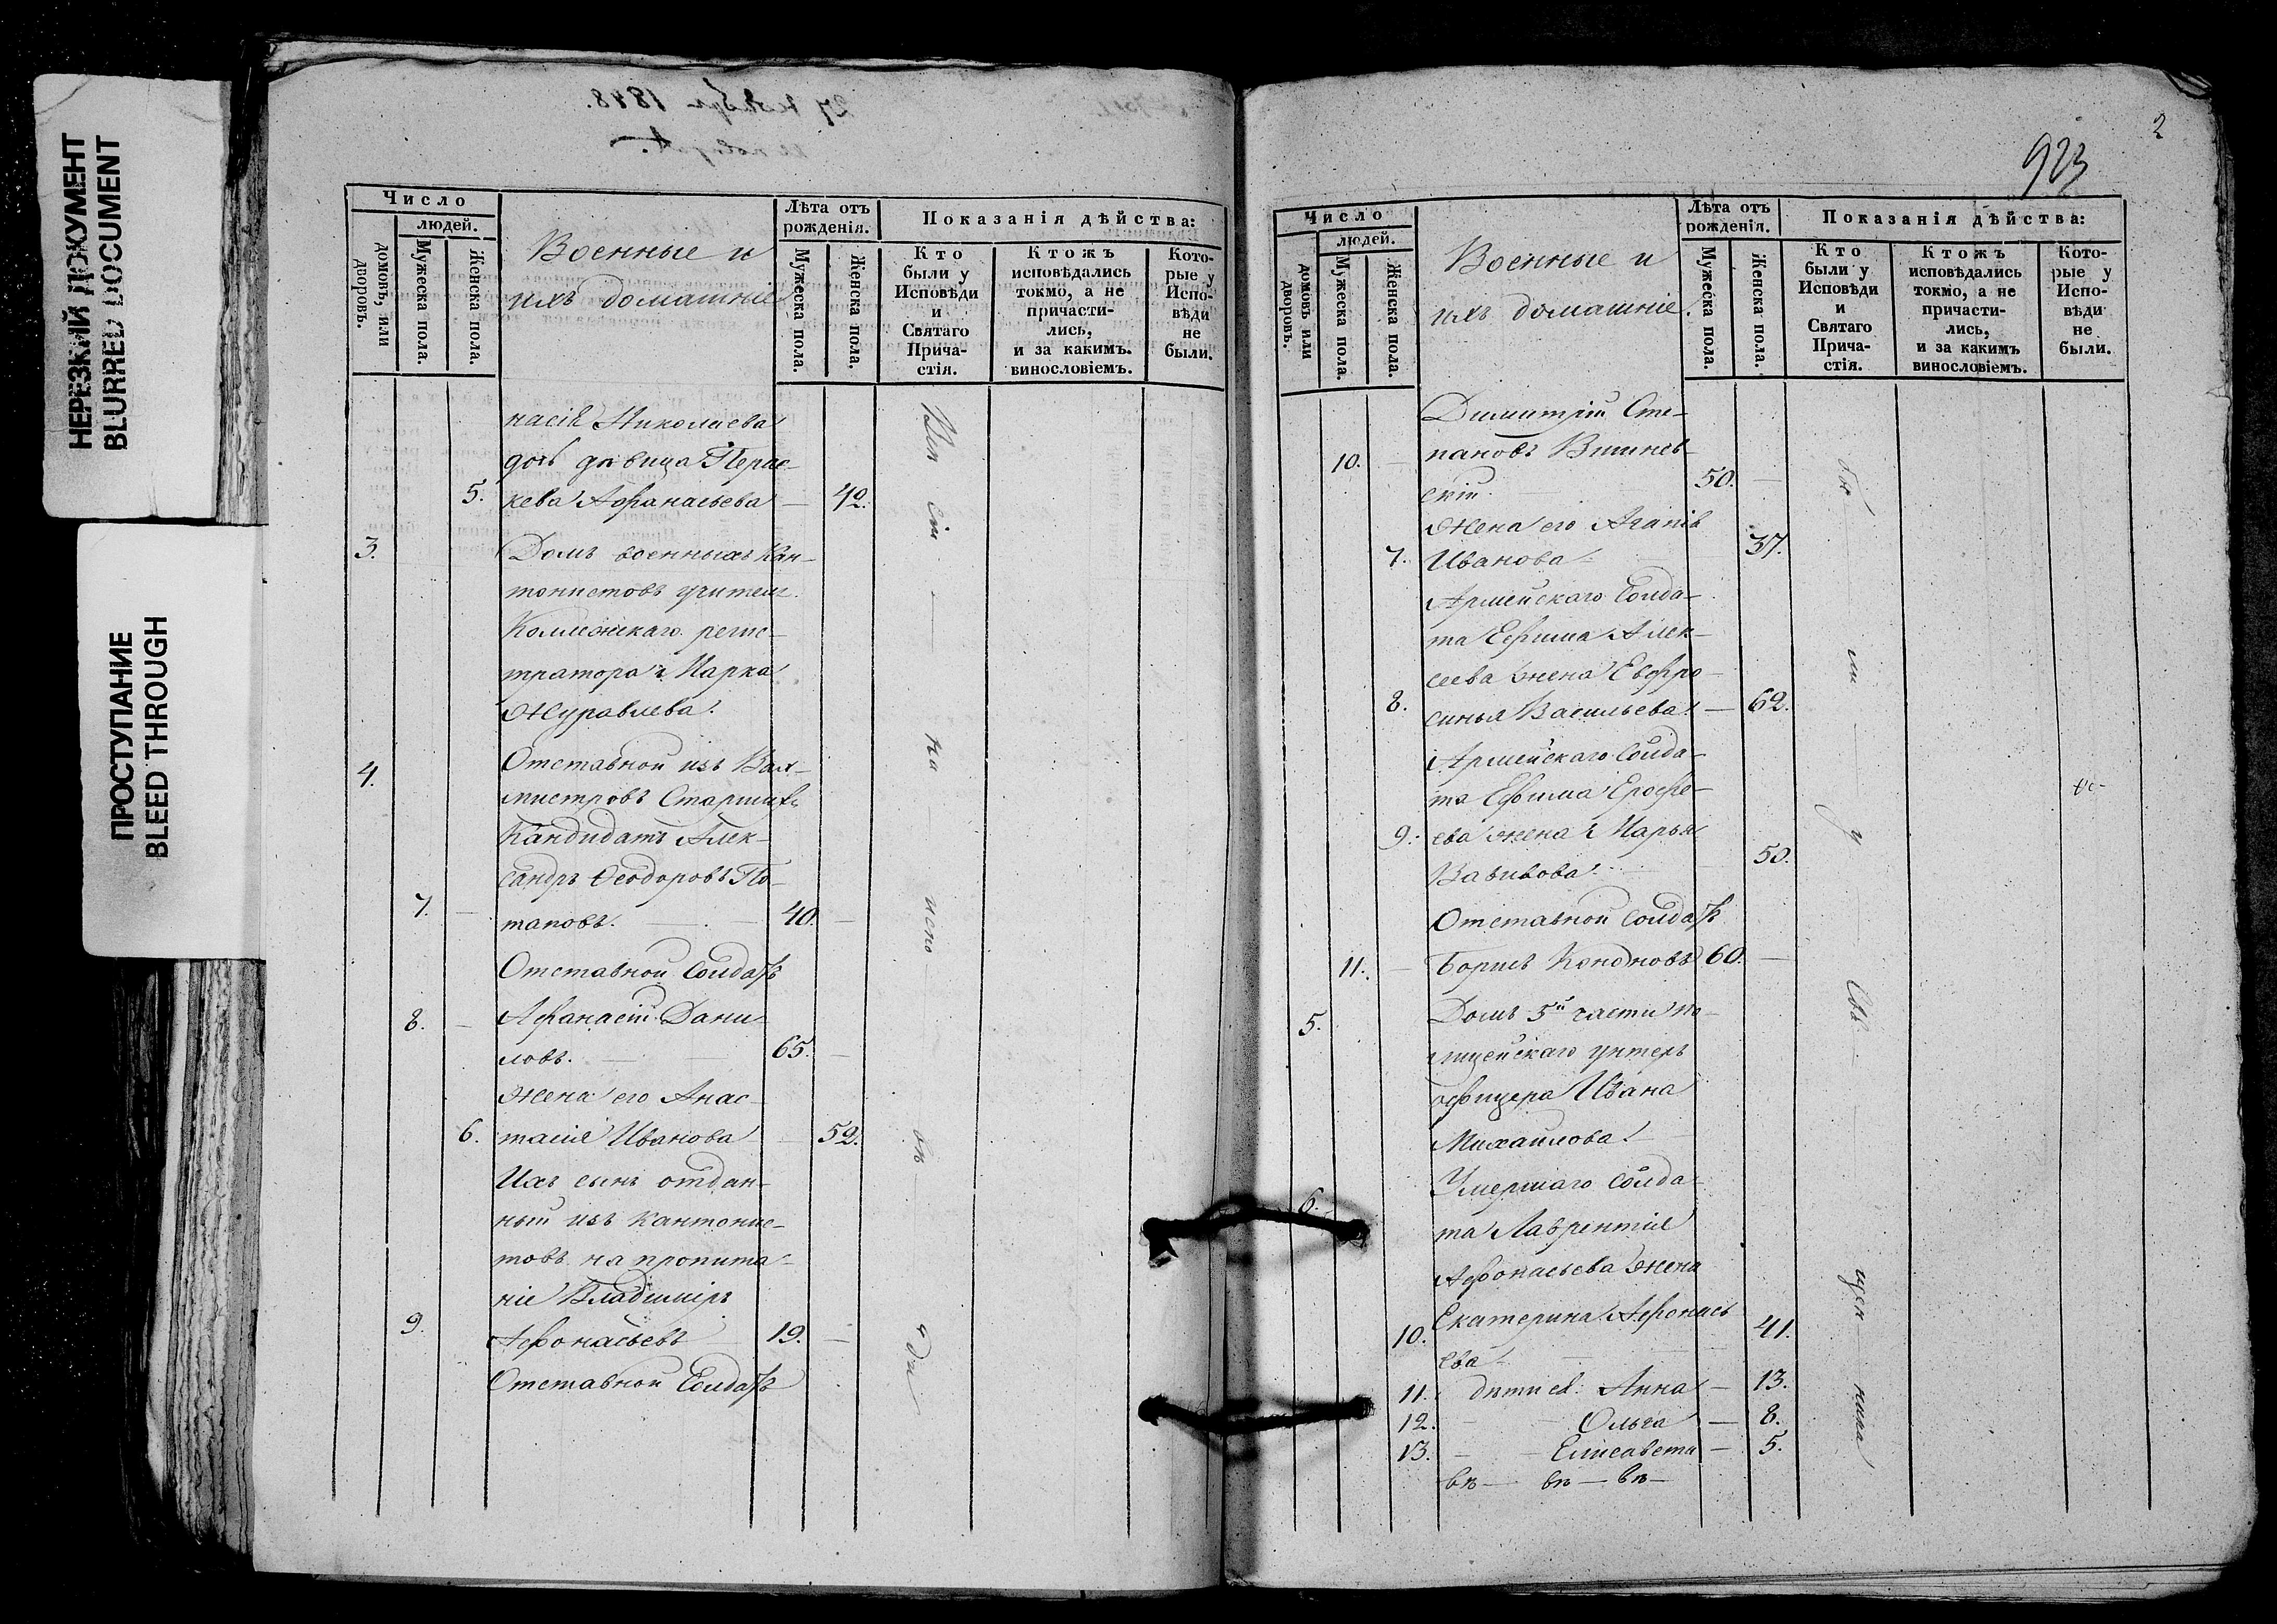 НЕРЕЗКИЙ ДОКУМЕНТ
BLURRED DOCUMENT
ПРОСТУПАНИЕ
BLEED THROUGH
1848.
Число
людей.
домовъ, или дворовъ.
Мужеска пола.
Женска пола.
Военные и
ихъ домашніе
Лѣта отъ рожденія.
Мужеска пола.
Женска пола.
Показанія дѣйства:
Кто были у Исповѣди и Святаго Прича-стія.
Ктожъ исповѣдались токмо, а не причасти-лись, и за какимъ. винословіемъ.
Кото-рые у Испо-вѣди не были.
насія Николаева
дочь дѣвица Парас-
5. кева Афанасьева — 42.
3. Домъ военныхъ Кан-
тонистовъ учителя
Коллежскаго регис-
тратора Марка
Журавлева.
4. Отставной изъ Вах-
мистровъ Старшій
Кандидатъ Алек-
сандръ Ѳеодоровъ По-
7. — таповъ. — 40. —
Отставной Солдатъ
8. — Афанасій Дани-
ловъ. — 65. —
Жена его Анас-
6. тасія Иванова — 52.
Ихъ сынъ отдан-
ный изъ кантонис-
товъ на пропита-
ніе Владиміръ
9. Афонасьевъ 19. —
Отставной Солдатъ
Всѣ сіи — на — испо вѣ — ди
2
923
Число
людей.
домовъ или дворовъ.
Мужеска пола.
Женска пола.
Военные и
ихъ домашніе.
Лѣта отъ рожденія.
Мужеска пола.
Женска пола.
Показанія дѣйства:
Кто были у Исповѣди и Святаго Прича-стія.
Ктожъ исповѣдались токмо, а не причасти-лись, и за какимъ винословіемъ.
Кото-рые у Испо-вѣди не были.
Димитрій Сте-
10. — пановъ Вишнев-
скій. 50. —
Жена его Агапія
7. Иванова — 37.
Армейскаго Солда-
та Ефима Алек-
сеева жена Евфро-
8. синья Васильева — 62.
Армейскаго Солда-
та Ефима Ерофе-
9. ева жена Марья
Вавилова — 50.
Отставной Солдатъ
11. — Борисъ Кононовъ 60. —
5. Домъ 5й части по-
лицейскаго унтеръ
офицера Ивана
Михайлова.
6. Умершаго Солда-
та Лаврентія
Афонасьева жена
Екатерина Афонась
10. ева — 41.
11. дѣти ея Анна — 13.
12. — Ольга — 8.
13. — Елисавета — 5.
вѣ — вѣ — вѣ —
бы — ли — у — Св — щен — ника